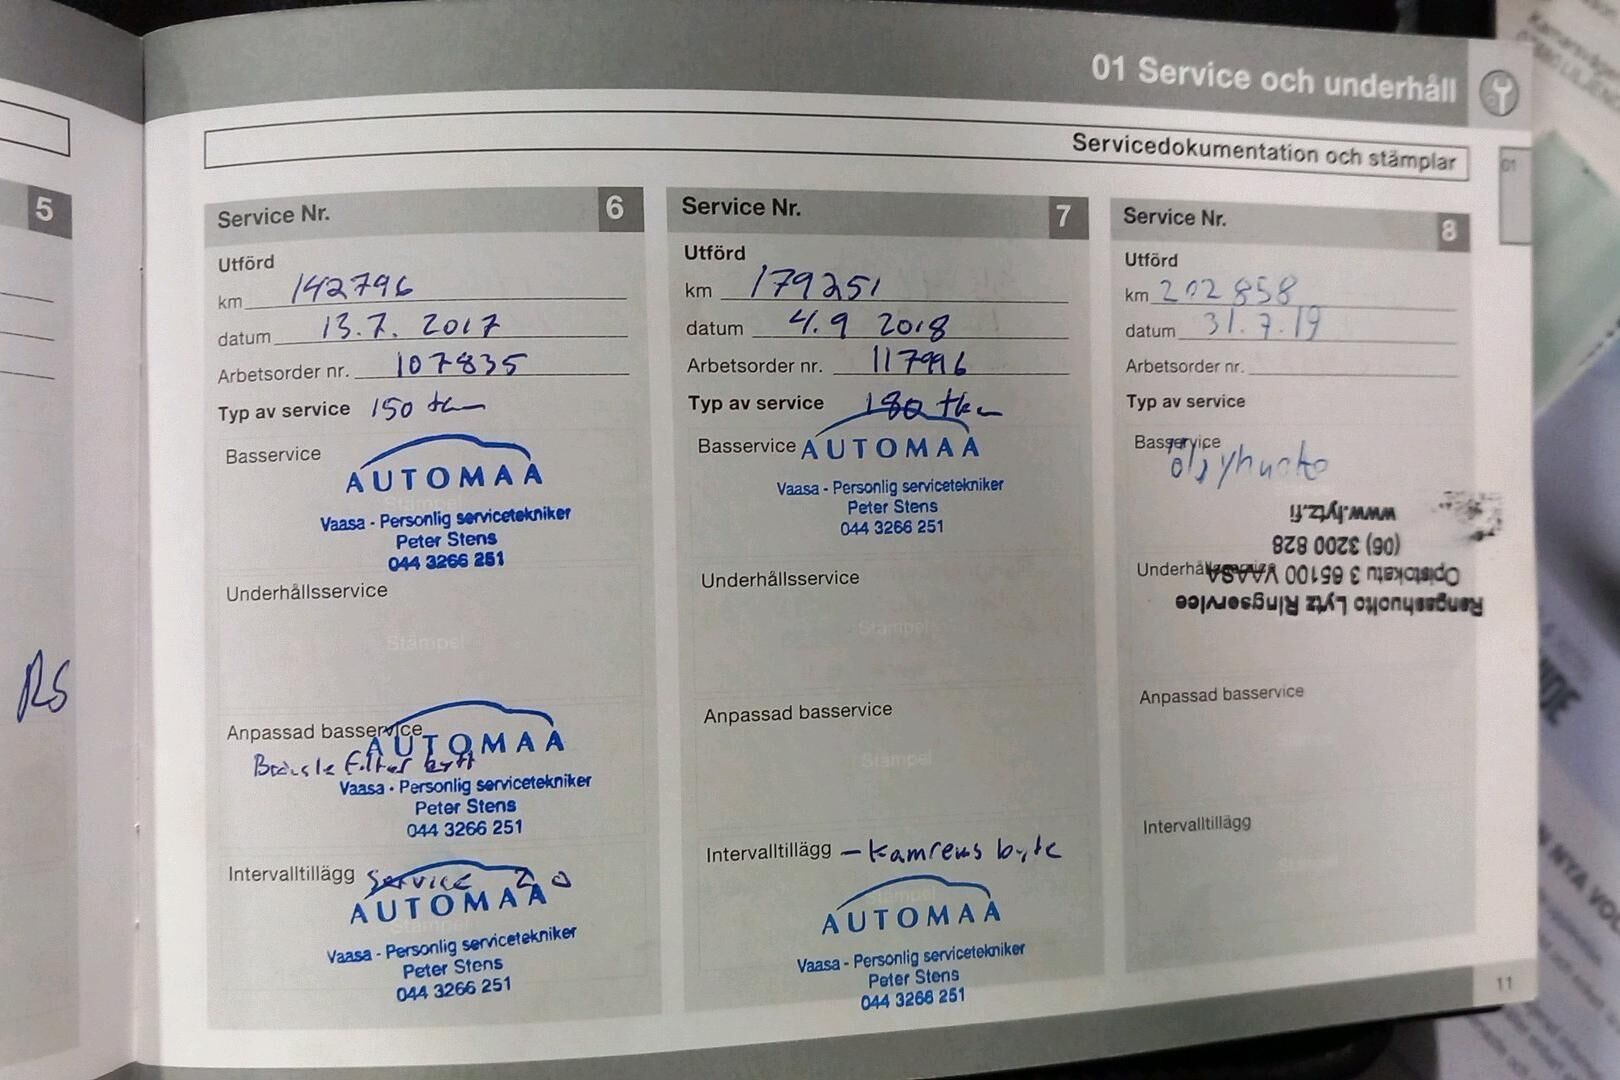 01 Service och underhåll
Servicedokumentation och stämplar
01
5
RS
Service Nr. 6
Utförd
km 142796
datum 13.7. 2017
Arbetsorder nr. 107835
Typ av service 150 tkm
Basservice
AUTOMAA
Vaasa - Personlig servicetekniker
Peter Stens
044 3266 251
Underhållsservice
Stämpel
Anpassad basservice
AUTOMAA
Bränsle filter bytt
Vaasa - Personlig servicetekniker
Peter Stens
044 3266 251
Intervalltillägg Service 2.0
AUTOMAA
Stämpel
Vaasa - Personlig servicetekniker
Peter Stens
044 3266 251
Service Nr. 7
Utförd
km 179251
datum 4.9 2018
Arbetsorder nr. 117996
Typ av service 180 tkm
Basservice
AUTOMAA
Vaasa - Personlig servicetekniker
Peter Stens
044 3266 251
Underhållsservice
Stämpel
Anpassad basservice
Stämpel
Intervalltillägg - Kamrems byte
Stämpel
AUTOMAA
Vaasa - Personlig servicetekniker
Peter Stens
044 3266 251
Service Nr. 8
Utförd
km 202 858
datum 31.7.19
Arbetsorder nr.
Typ av service
Basservice
öljyhuolto
Rengashuolto Lytz Ringservice
Opistokatu 3 65100 VAASA
(06) 3200 828
www.lytz.fi
Anpassad basservice
Intervalltillägg
11